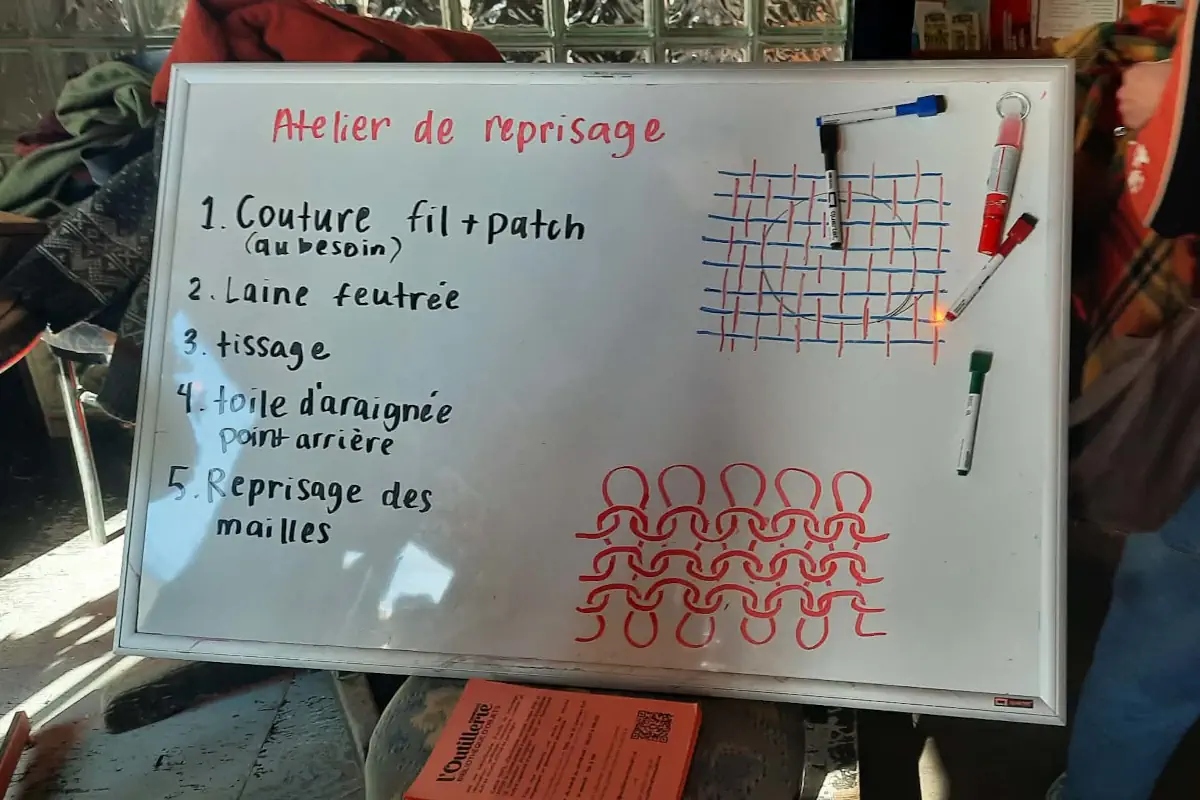 Atelier de reprisage
1. Couture fil + patch
(au besoin)
2. Laine feutrée
3. tissage
4. toile d'araignée
point arrière
5. Reprisage des
mailles
l'Outillerie